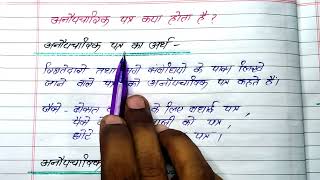 अनौपचारिक पत्र क्या होता है?
अनौपचारिक पत्र का अर्थ -
रिश्तेदारों तथा सगे संबंधियों के पास लिखे
जाने वाले पत्र को अनौपचारिक पत्र कहते हैं।
जैसे - दोस्त के लिए बधाई पत्र,
जी को पत्र,
छोटे पत्र।
अनौपचारिक